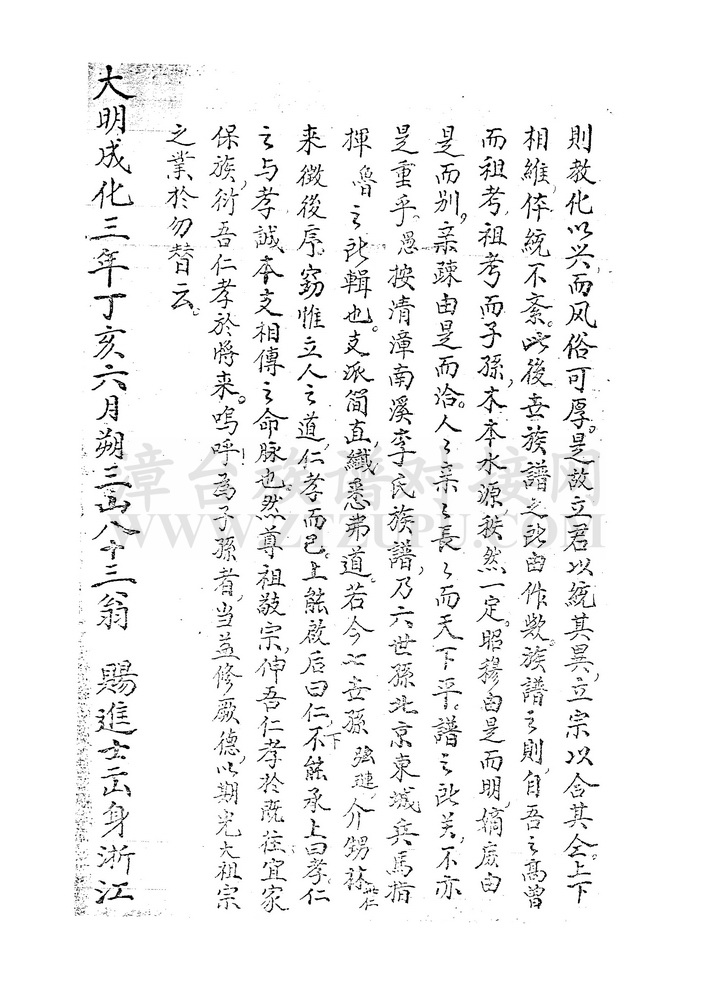 則教化以兴,而风俗可厚。是故立君以統其異,立宗以合其仝。上下
相維,体統不紊。此後世族譜之所由作欤。族譜之則,自吾之高曾
而祖考,祖考而子孫,木本水源,秩然一定。昭穆由是而明,嫡庶由
是而别,亲疎由是而洽。人之亲之長之而天下平。譜之所关,不亦
是重乎。愚按清漳南溪李氏族譜,乃六世孫北京東城兵馬指
揮 魯之所輯也。支派简直,纖悉弗道。若今七世孫 介甥
来徵後序。窃惟立人之道,仁孝而已。上能啟后曰仁,下不能承上曰孝。仁
之与孝,誠本支相傳之命脉也。然尊祖敬宗,伸吾仁孝於既往,宜家
保族,衍吾仁孝於將来。嗚呼!為子孫者,当益修厥德,以期光大祖宗
之業於勿替云。
大明成化三年丁亥六月朔三山八十三翁 賜進士出身浙江
漳台族谱对接网
WWW.ZTZUPU.COM